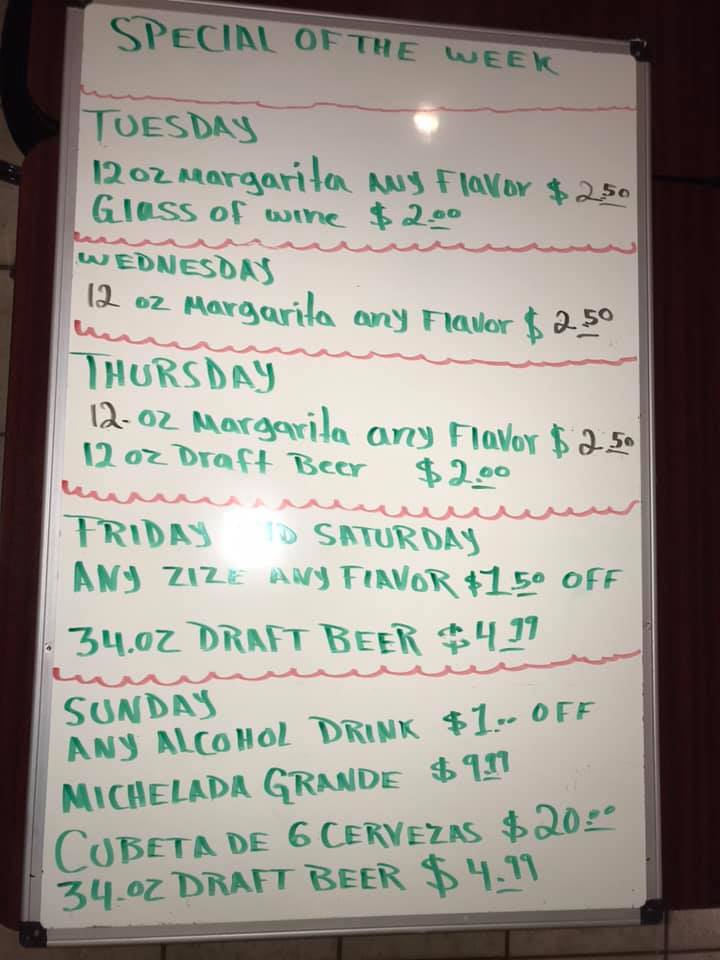 SPECIAL OF THE WEEK
TUESDAY
12 oz Margarita ANY Flavor $ 2.50
Glass of wine $ 2.00
WEDNESDAY
12 oz Margarita any Flavor $ 2.50
THURSDAY
12-oz Margarita any Flavor $ 2.50
12 oz Draft Beer $2.00
FRIDAY AND SATURDAY
ANY ZIZE ANY FLAVOR $1.50 OFF
34.OZ DRAFT BEER $4.99
SUNDAY
ANY ALCOHOL DRINK $1.00 OFF
MICHELADA GRANDE $9.99
CUBETA DE 6 CERVEZAS $20.00
34.OZ DRAFT BEER $4.99